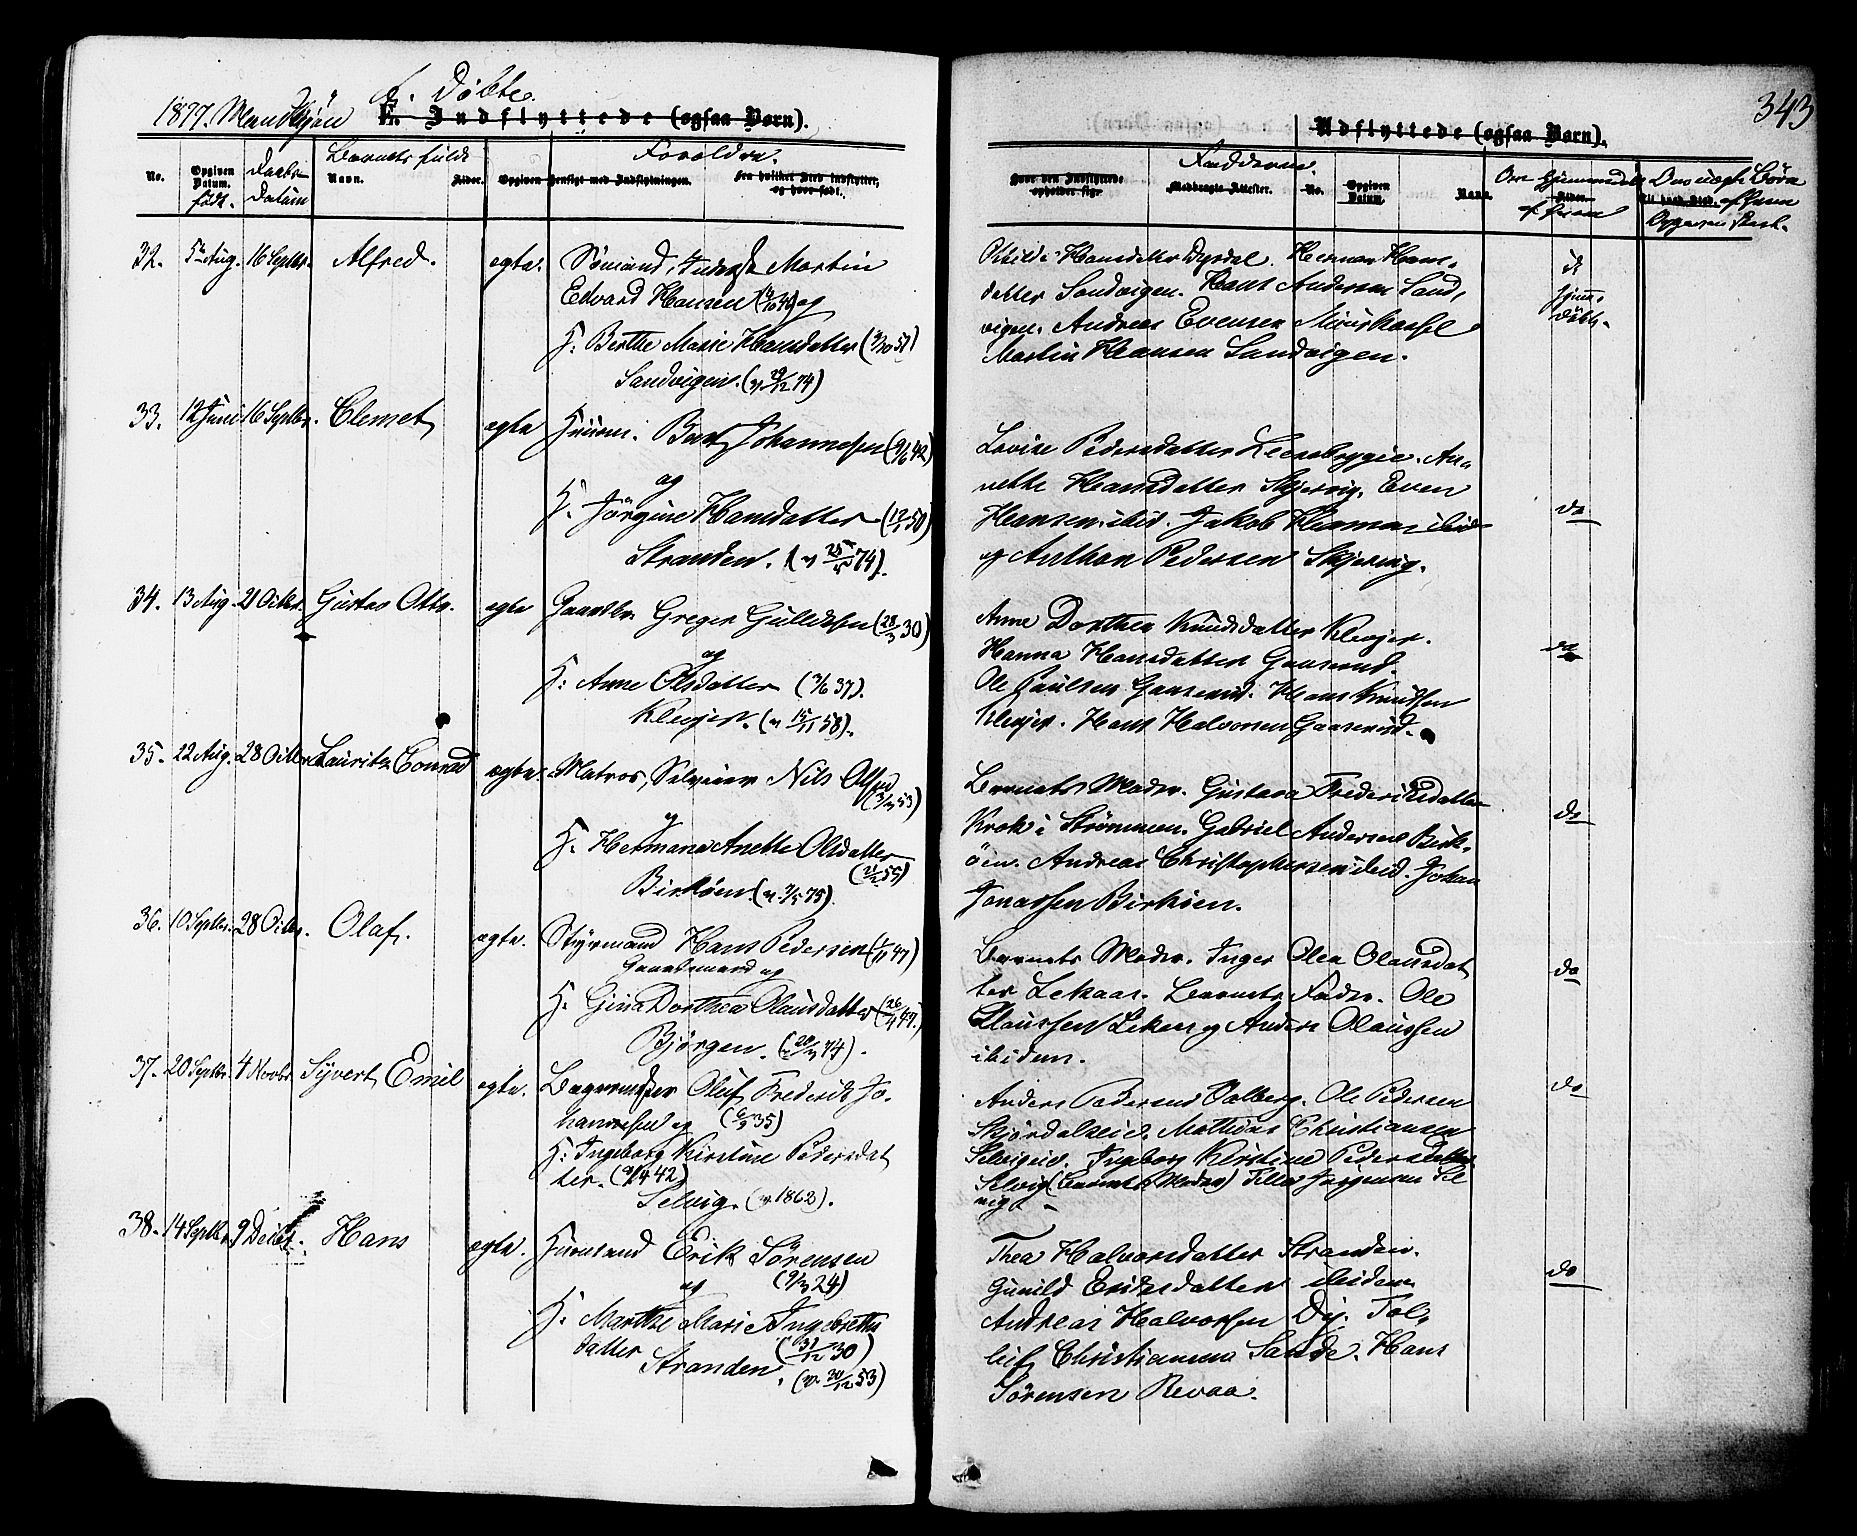 1877. Mandkjøn A. Døbte.
E. Indflyttede (ogsaa Børn).
No. Opgiven Datum. født. Daabs Datum Barnets fulde Navn. Alder. Forældre.
Opgiven Hensigt med Indflytningen. fra hvilket Sted indflyttet, og hvor født.
32. 5te Aug. 16 Septbr. Alfred. ægte. Sømand, Martin
Edvard Hansen og
H. Berthe Marie Hansdatter
Sandvigen. (v 29/12 74)
33. 12 Juni 16 Septbr. Clemet ægte Huusm. Bent Johannesen (9/6 42)
og
H. Jørgine Hansdatter (12/1 50)
Stranden. (v 25/5 74).
34. 13 Aug. 21 Octbr. Gustav Otto. ægte Gaardbr. Greger Gulliksen (28/3 30)
og
H. Anne Olsdatter (7/6 37).
Klevjer. (v 15/11 58).
35. 22 Aug. 28 Octbr. Lauritz Conrad ægte. Matros, Selveier Nils Olsen
og
H. Hermana Anette Olsdatter
Birkøen (v. 7/5 75).
36. 10 Septbr. 28 Octbr. Olaf. ægte. Styrmand Hans Pedersen
Gaardmand og
H. Gina Dorthea Olausdatter
Bjørgen. (v 28/ 74).
37. 20 Septbr. 4 Novbr. Syvert Emil ægte. Bagermester Oluf Frederik Jo-
hannesen og
H. Ingeborg Kirstine Pedersdat
ter.
Selvig. (v. 1862).
38. 14 Septbr. 9 Decbr. Hans ægte. Huusmand Erik Sørensen
og (9/3 24)
H. Marthe Marie Ingebreths
datter (31/12 30)
Stranden. (v. 30/12 53)
343
Udflyttede (ogsaa Børn).
Fadderne.
Hvor den Indflyttede opholder sig. Medbragte Attester. No. Opgiven Datum. Navn. Om Hjemmedøbt Alder. Om uægte Børn
Hansdatter Dyrdal. Herman Hans-
datter Sandvigen. Hans Andersen Sand,
vigen. Andreas Evensen
Martin Hansen Sandvigen.
hjem.
døbt.
Lovise Pedersdatter An-
nette Hansdatter Skjervig. Even
Hansen ibid. Jakob Herman ibid
og Anthon Pedersen Skjervig.
do
Anne Dorthea Knudsdatter Klevjer.
Hanna Hansdatter Gaaserud.
Ole Paulsen Gaaserud. Hans Knudsen
Klevjer. Hans Halvorsen Gaaserud.
do
Barnets Moder. Gustava Frederiksdatter
Krok i Strømmen. Gabriel Andersen Birk-
øen. Andreas Christophersen ibid. Johan
Jonassen Birkøen.
do
Barnets Moder. Inger Olea Olausdat
ter Lekaas. Barnets Fader. Ole
Claussen Leken og Anders Olaussen
ibidem.
do
Anders Pedersen Dalberg. Ole Pedersen
Mathias Christiansen
Selvigeid. Ingeborg Kirstine Pedersdatter
Selvig (Barnets Moder) Jørgensen Sel
vig.
do
Thea Halvorsdatter Stranden.
Gunild Eriksdatter ibidem
Andreas Halvorsen Dy. Tol-
lief Christiansen Sande. Hans
Sørensen Revaa.
do